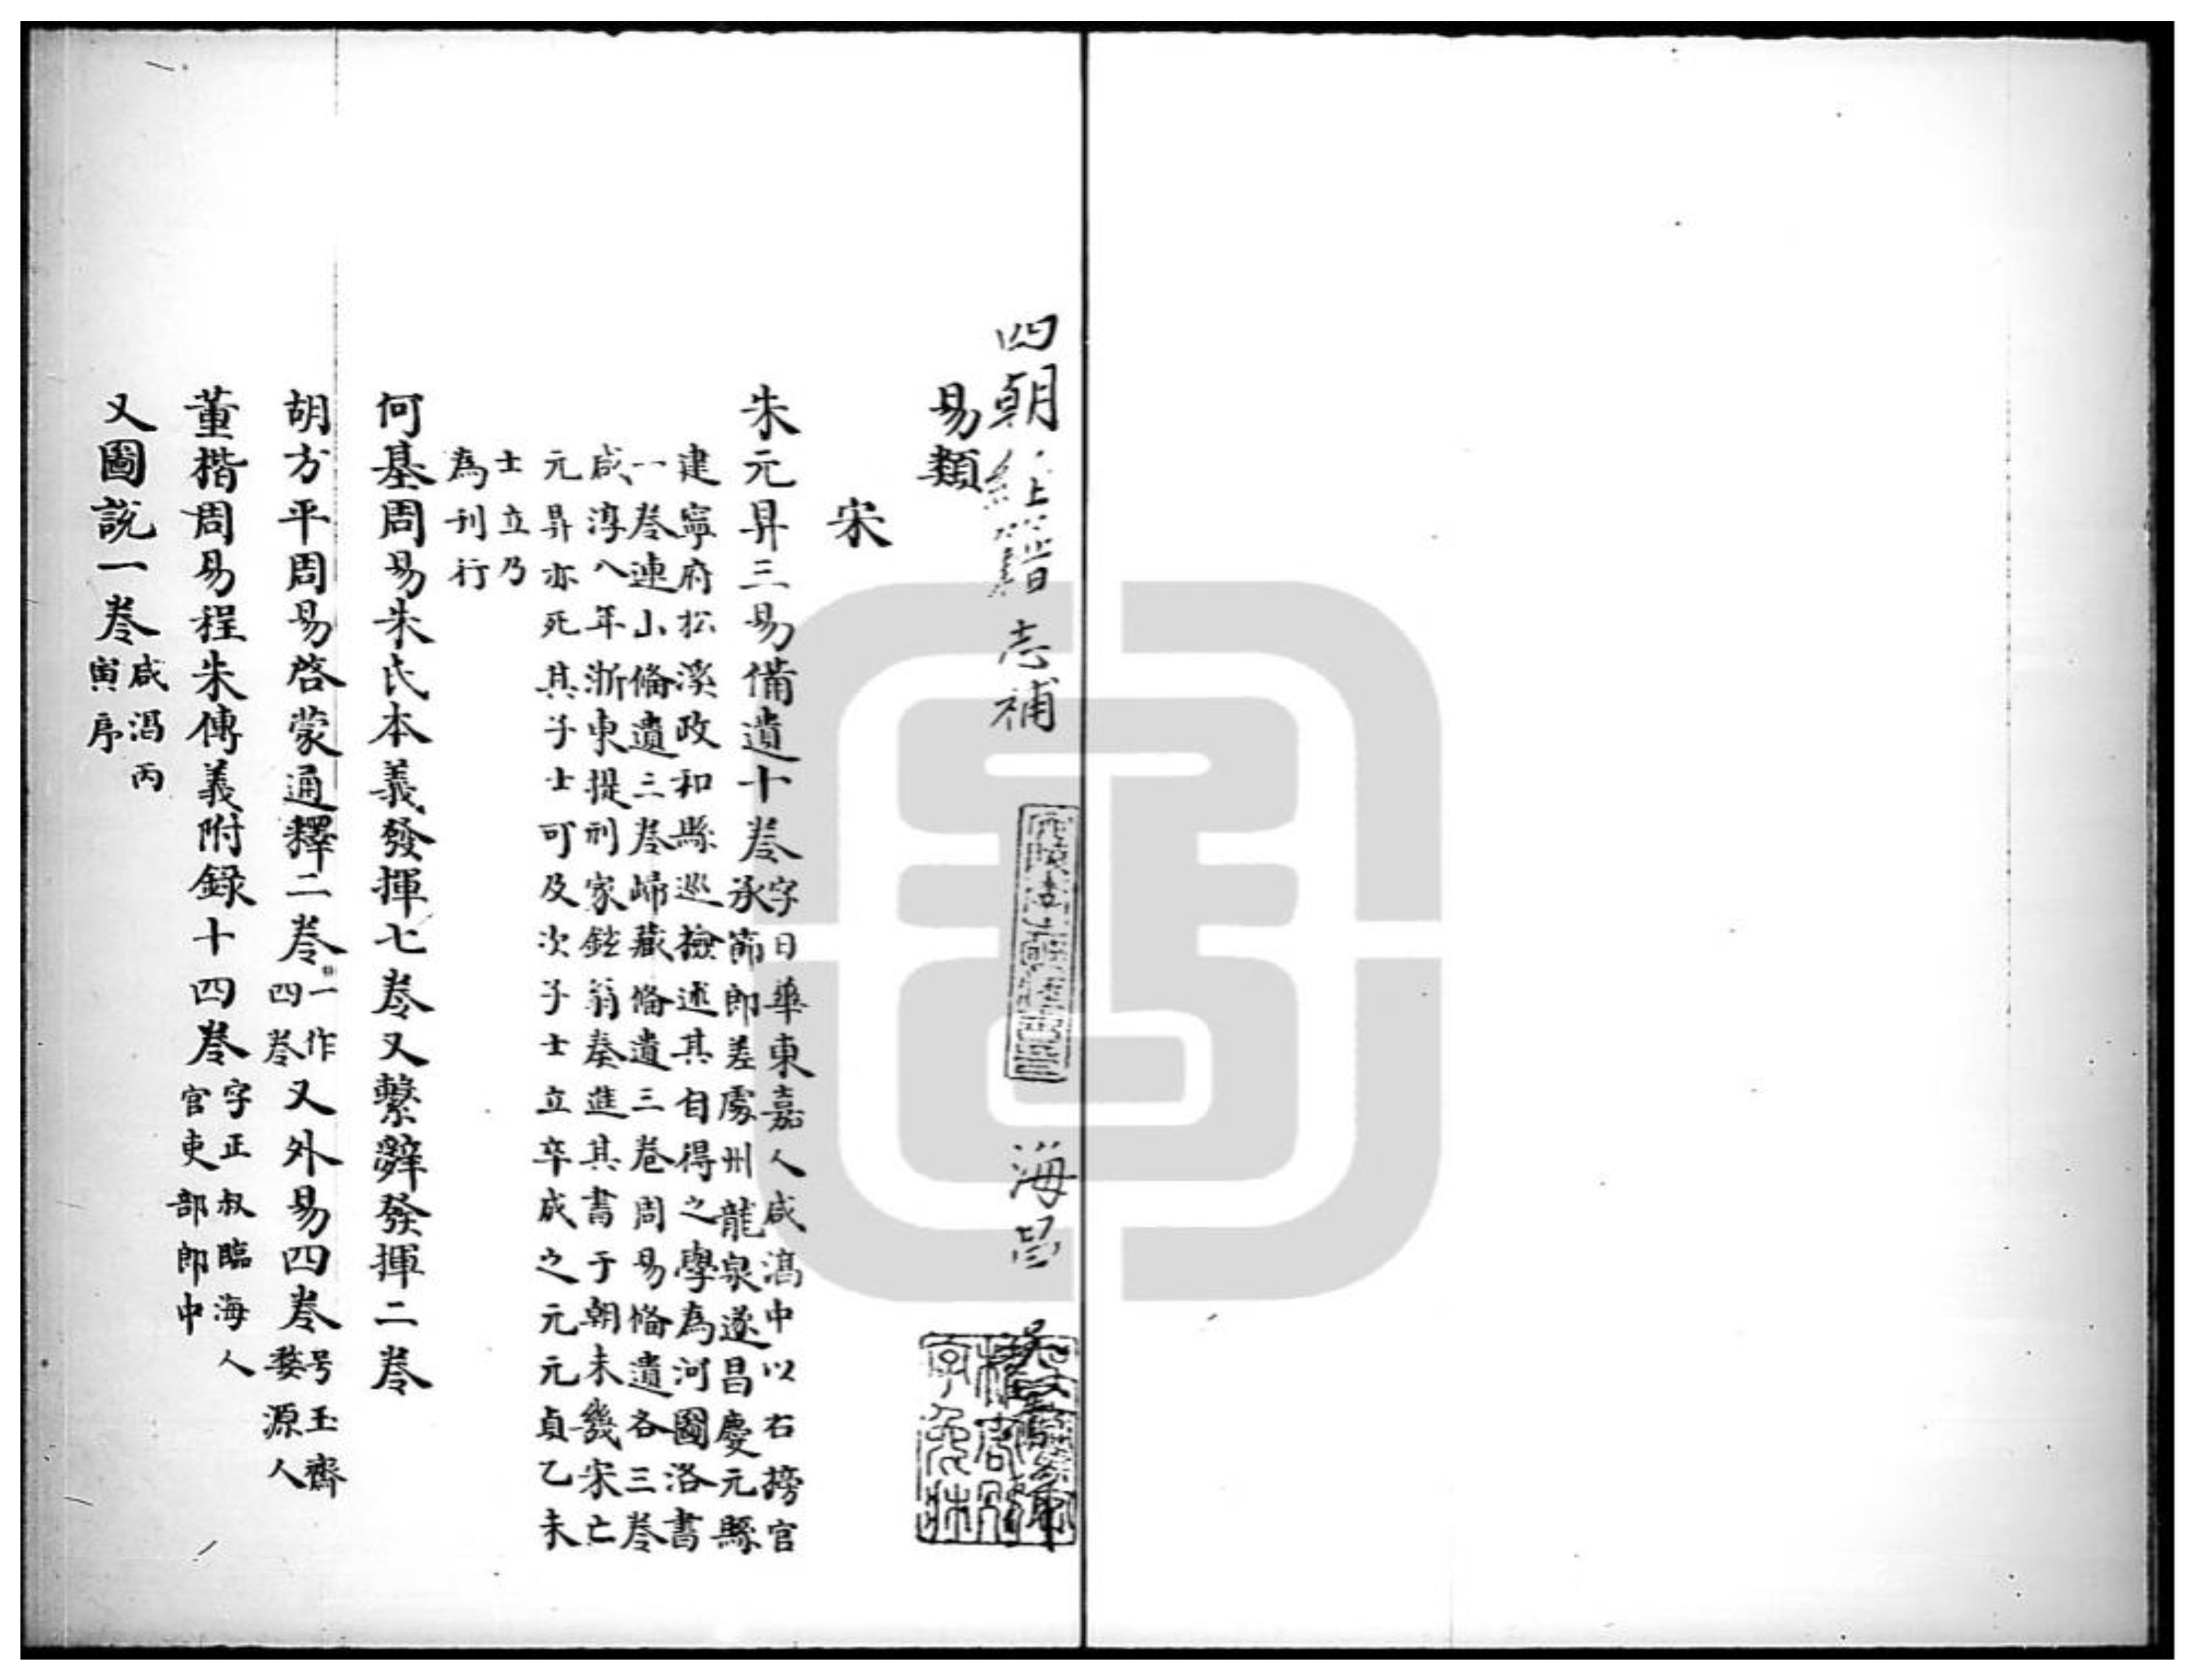 四朝經籍志補　海昌　吳騫
易類
宋
朱元昇三易備遺十卷字日華東嘉人咸淳中以右榜官
承節郎差處州龍泉遂昌慶元縣
建寧府松溪政和縣巡檢述其自得之學為河圖洛書
一卷連山備遺三卷歸藏備遺三卷周易備遺各三卷
咸淳八年浙東提刑家鉉翁奏進其書于朝未幾宋亡
元昇亦死其子士可及次子士立卒成之元元貞乙未
士立乃
為刊行
何基周易朱氏本義發揮七卷又繫辭發揮二卷
胡方平周易啓蒙通釋二卷一作四卷又外易四卷号玉齋婺源人
董楷周易程朱傳義附錄十四卷字正叔臨海人官吏部郎中
又圖說一卷咸淳丙寅序